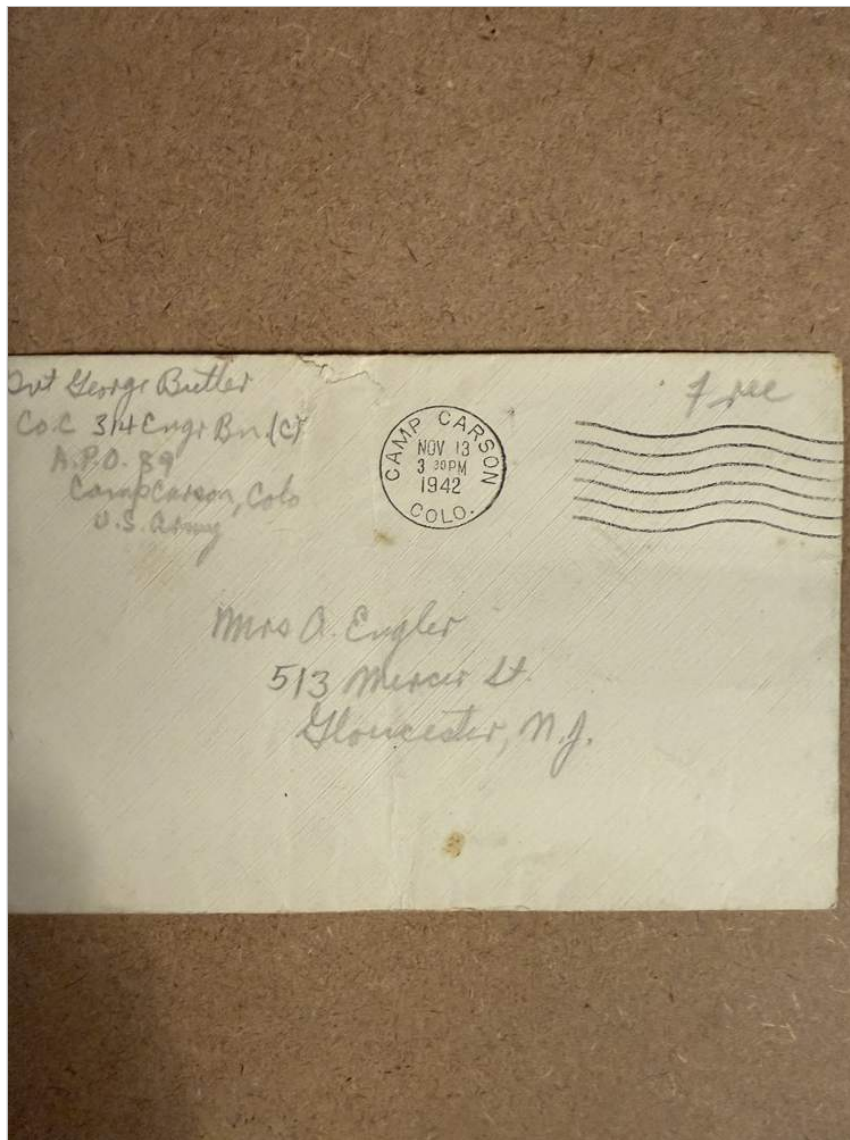 Pvt George Butler
Co.C 314 Engr Bn.(C)
A.P.O. 89
Camp Carson, Colo
U.S. Army
Free
CAMP CARSON
NOV 13
3 30 PM
1942
COLO.
Mrs A. Engler
513 Mercer St.
Gloucester, N.J.